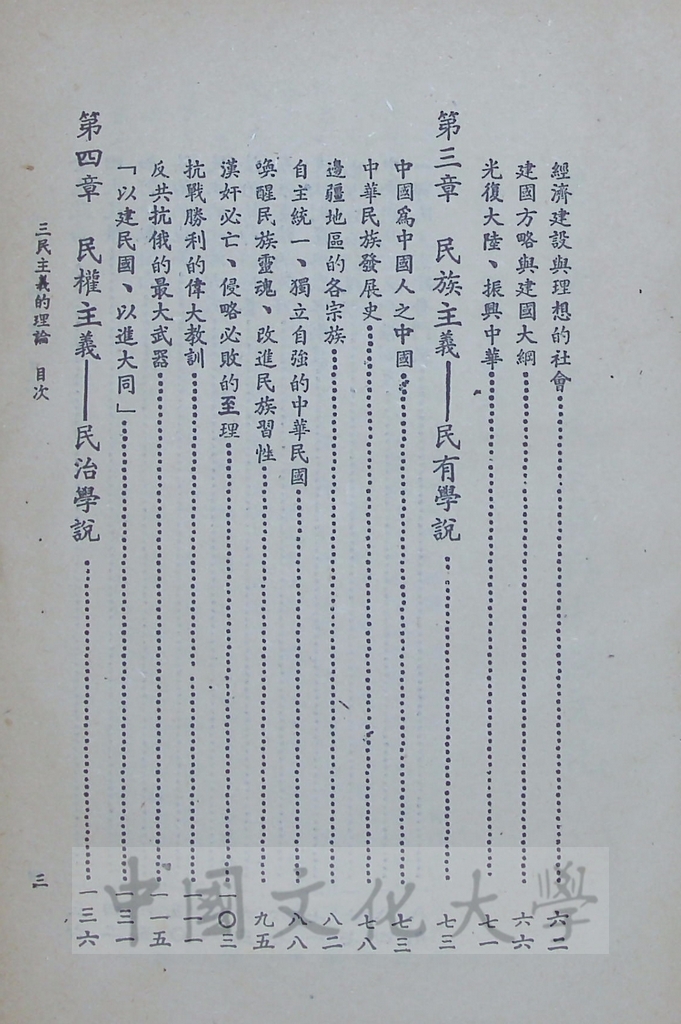 經濟建設與理想的社會……六二
建國方略與建國大綱……六六
光復大陸、振興中華……七一
第三章 民族主義——民有學說……七三
中國為中國人之中國……七三
中華民族發展史……七八
邊疆地區的各宗族……八二
自主統一、獨立自強的中華民國……八八
喚醒民族靈魂、改進民族習性……九五
漢奸必亡、侵略必敗的至理……一〇三
抗戰勝利的偉大教訓……一一一
反共抗俄的最大武器……一一五
「以建民國、以進大同」……一三一
第四章 民權主義——民治學說……一三六
三民主義的理論 目次
三
中國文化大學